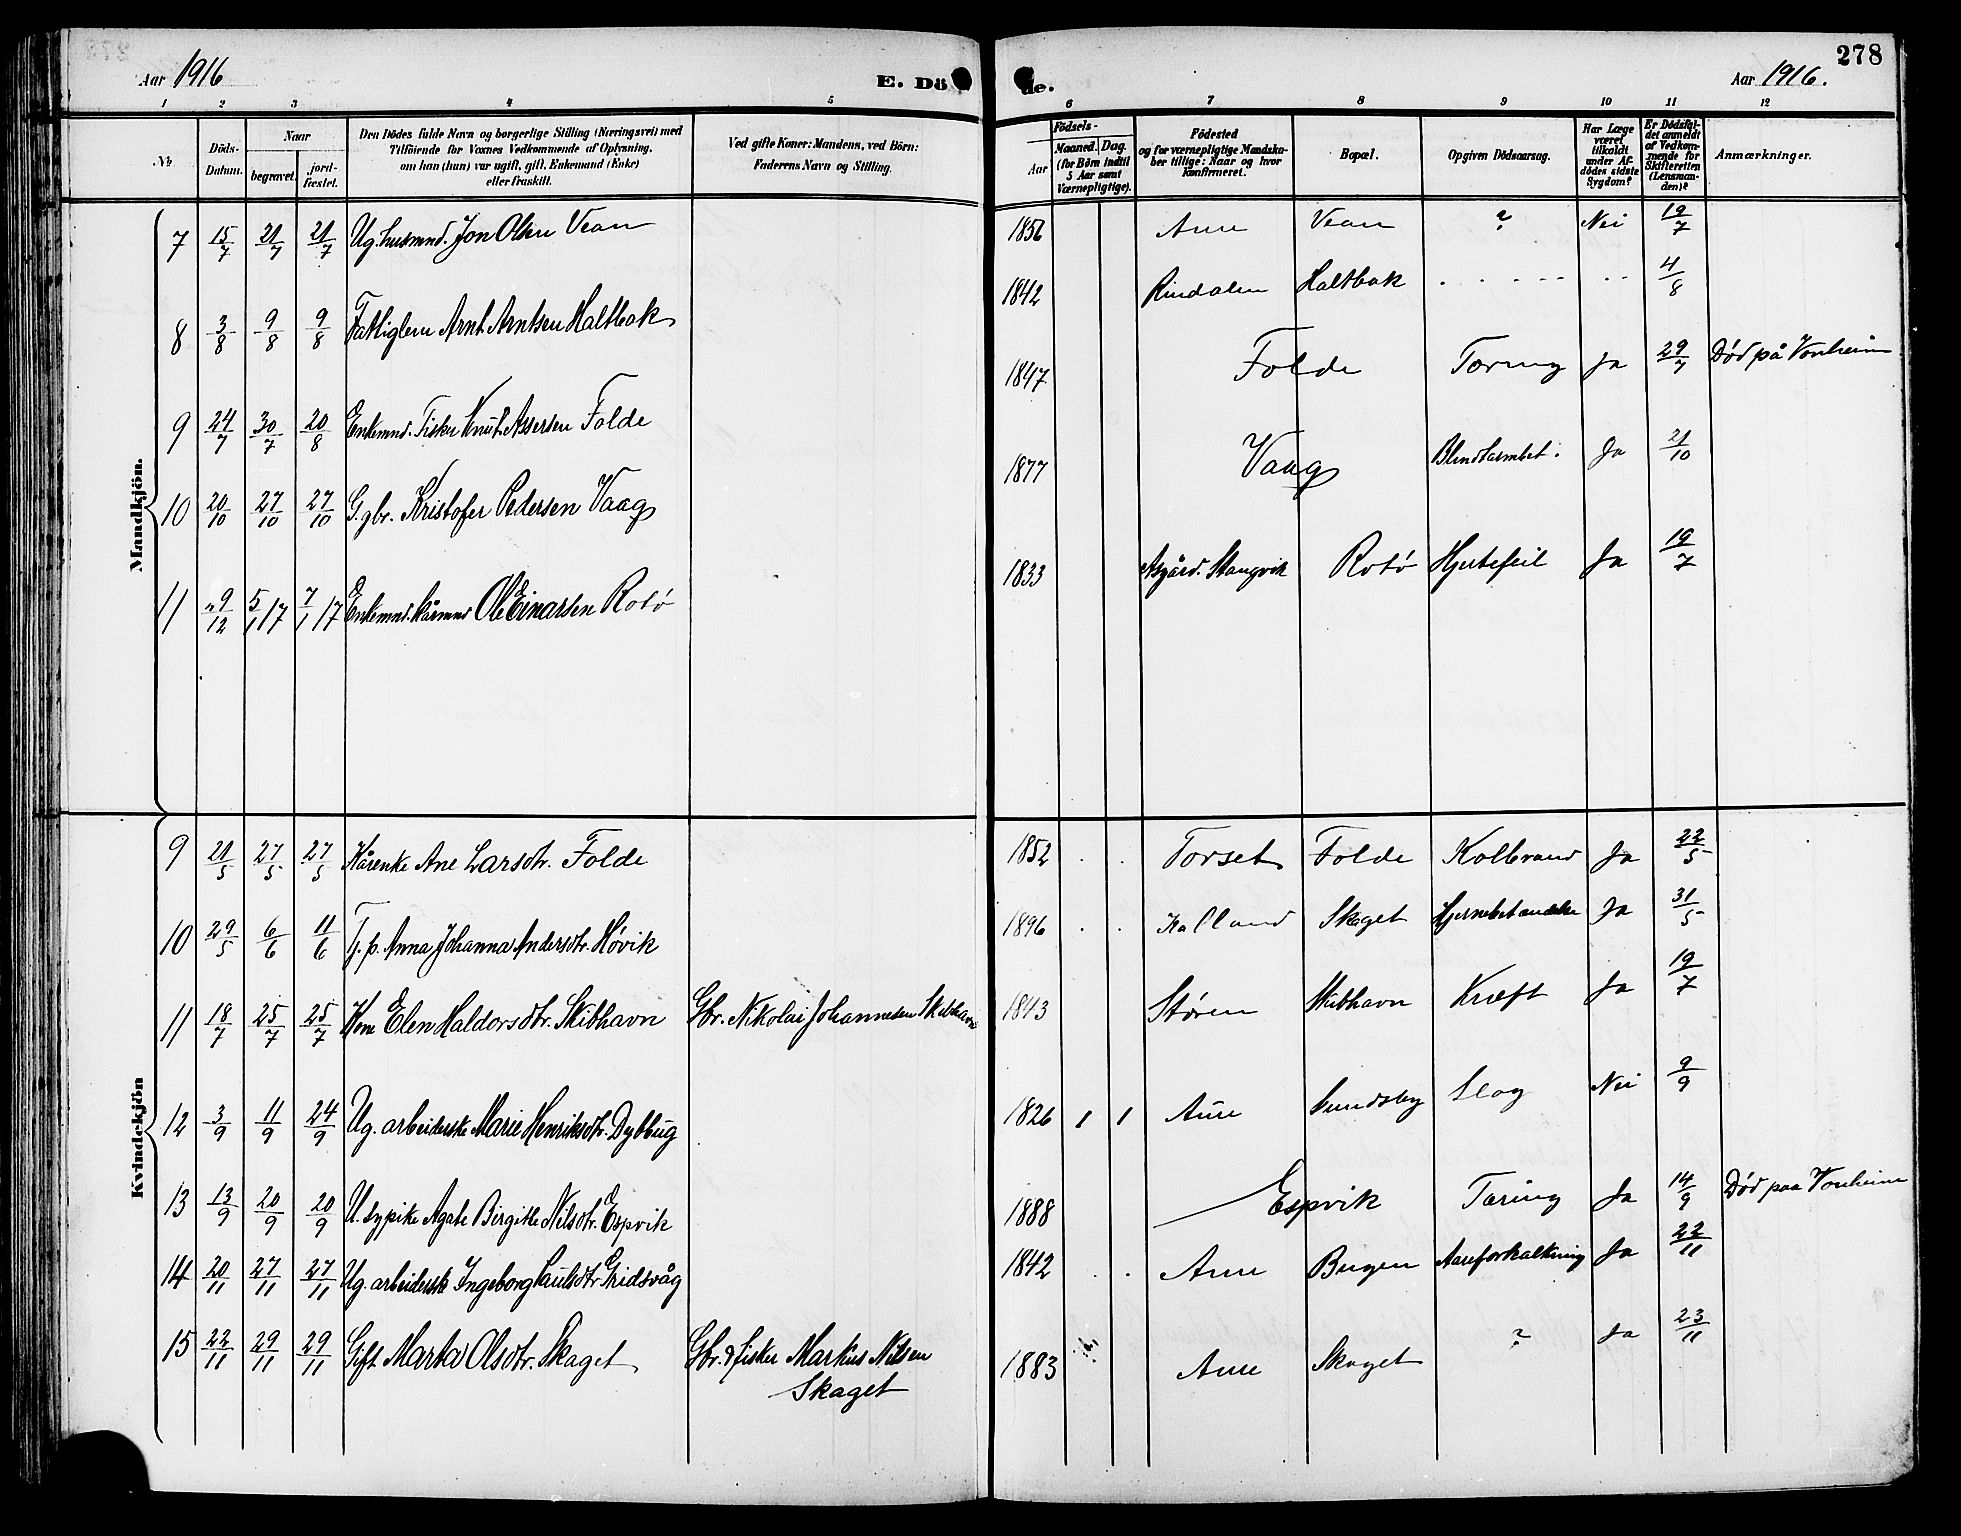 278
Aar 1916
E. Döde.
Aar 1916.
1 2 3 4 5 6 7 8 9 10 11 12
Nr
Döds-Datum.
Naar
begravet.
jord-fæstet.
Den Dödes fulde Navn og borgerlige Stilling (Næringsvei) med
Tilföiende for Voxnes Vedkommende af Oplysning,
om han (hun) var ugift, gift, Enkemand (Enke)
eller fraskilt.
Ved gifte Koner: Mandens, ved Börn:
Faderens Navn og Stilling.
Födsels-
Aar
Maaned. Dag.
(for Börn indtil
5 Aar samt
Værnepligtige).
Födested
og for værnepligtige Mandska-
ber tillige: Naar og hvor
konfirmeret.
Bopæl.
Opgiven Dödsaarsag.
Har Læge
været
tilkaldt
under Af-
dödes sidste
Sygdom?
Er Dödsfal-
det anmeldt
af Vedkom-
mende for
Skifteretten
(Lensman-
den)?
Anmærkninger.
Mandkjön.
7 15/7 21/7 21/7 Ug. husmnd. Jon Olsen Vean 1856 Aure Vean ? Nei 19/7
8 3/8 9/8 9/8 Fattiglem Arnt Arntsen Haltbak 1842 Rindalen Haltbak . . . . . . . 4/8
9 24/7 30/7 20/8 Enkemnd. Fisker Knut Assersen Folde 1847 Folde Tæring Ja 29/7 Död på Vonheim
10 20/10 27/10 27/10 G. gbr. Kristofer Pedersen Vaag 1877 Vaag Blindtarmbet. Ja 21/10
11 29/12 5/1 17 7/1 17 Enkemnd. kårmnd Ole Einarsen Rotø 1833 Asgård. Stangvik Rotø Hjertefeil Ja 19/7
Kvindekjön
9 21/5 27/5 27/5 Kårenke Ane Larsdtr. Folde 1852 . . Torset Folde Kolbrand Ja 22/5
10 29/5 6/6 11/6 Tj. p. Anna Johanna Andersdtr. Høvik 1896 . . Halland Skaget Hjernebetændelse Ja 31/5
11 18/7 25/7 25/7 Kone Elen Haldorsdtr. Skibhavn Gbr. Nikolai Johannesen Skibhavn 1843 Støren Skibhavn Kræft Ja 19/7
12 3/9 11/9 24/9 Ug. arbeiderske Marie Henriksdtr. Dybbug 1826 1 1 Aure Sundsby Slag Nei 9/9
13 13/9 20/9 20/9 U. sypike Agate Birgitte Nilsdtr. Espvik 1888 Espvik Tæring Ja 14/9 Död paa Vonheim
14 20/11 27/11 27/11 Ug. arbeiderske Ingeborg Paulsdtr. Gridsvåg 1842 . . Aure Bugen Aareforkalkning Ja 22/11
15 22/11 29/11 29/11 Gift Marta Olsdtr. Skaget Gbr. & fisker Markus Nilsen 1883 Aure Skaget ? Ja 23/11
Skaget